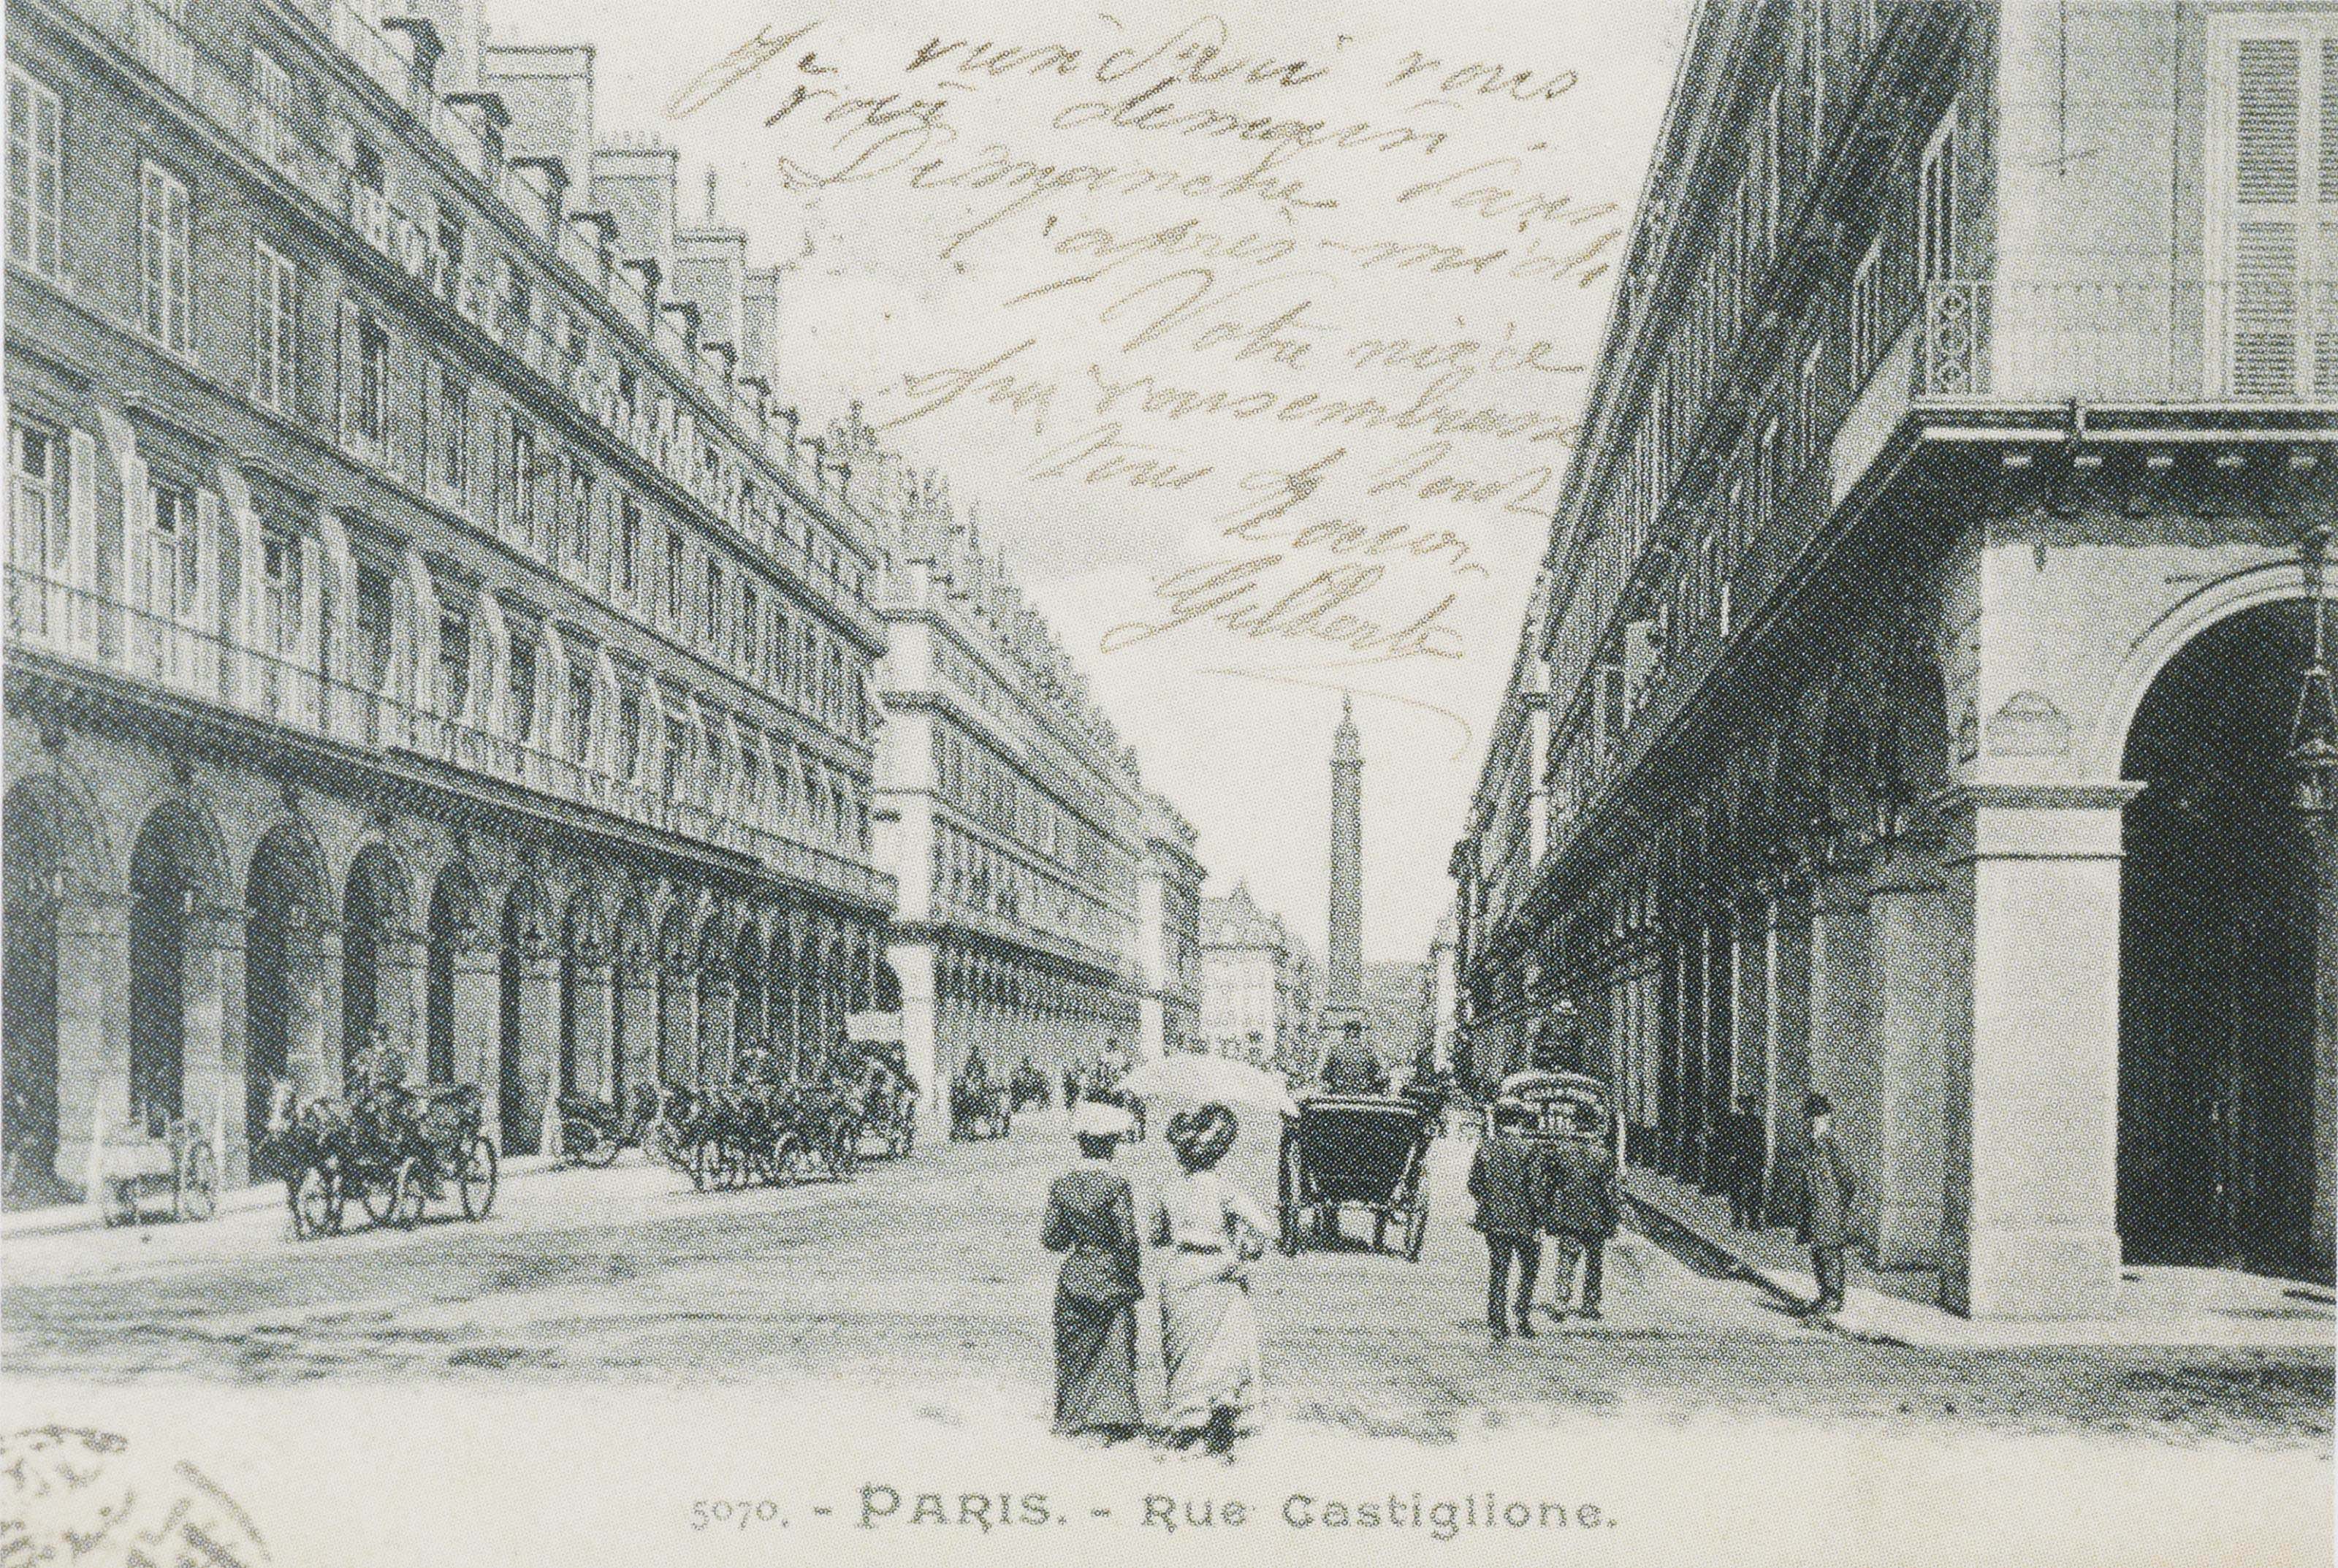 Je viendrai vous
voir demain
Dimanche dans
l'après-midi
Votre nièce
qui vous embrasse
tous de tout
coeur,
Gilberte
5070. - PARIS. - Rue Castiglione.